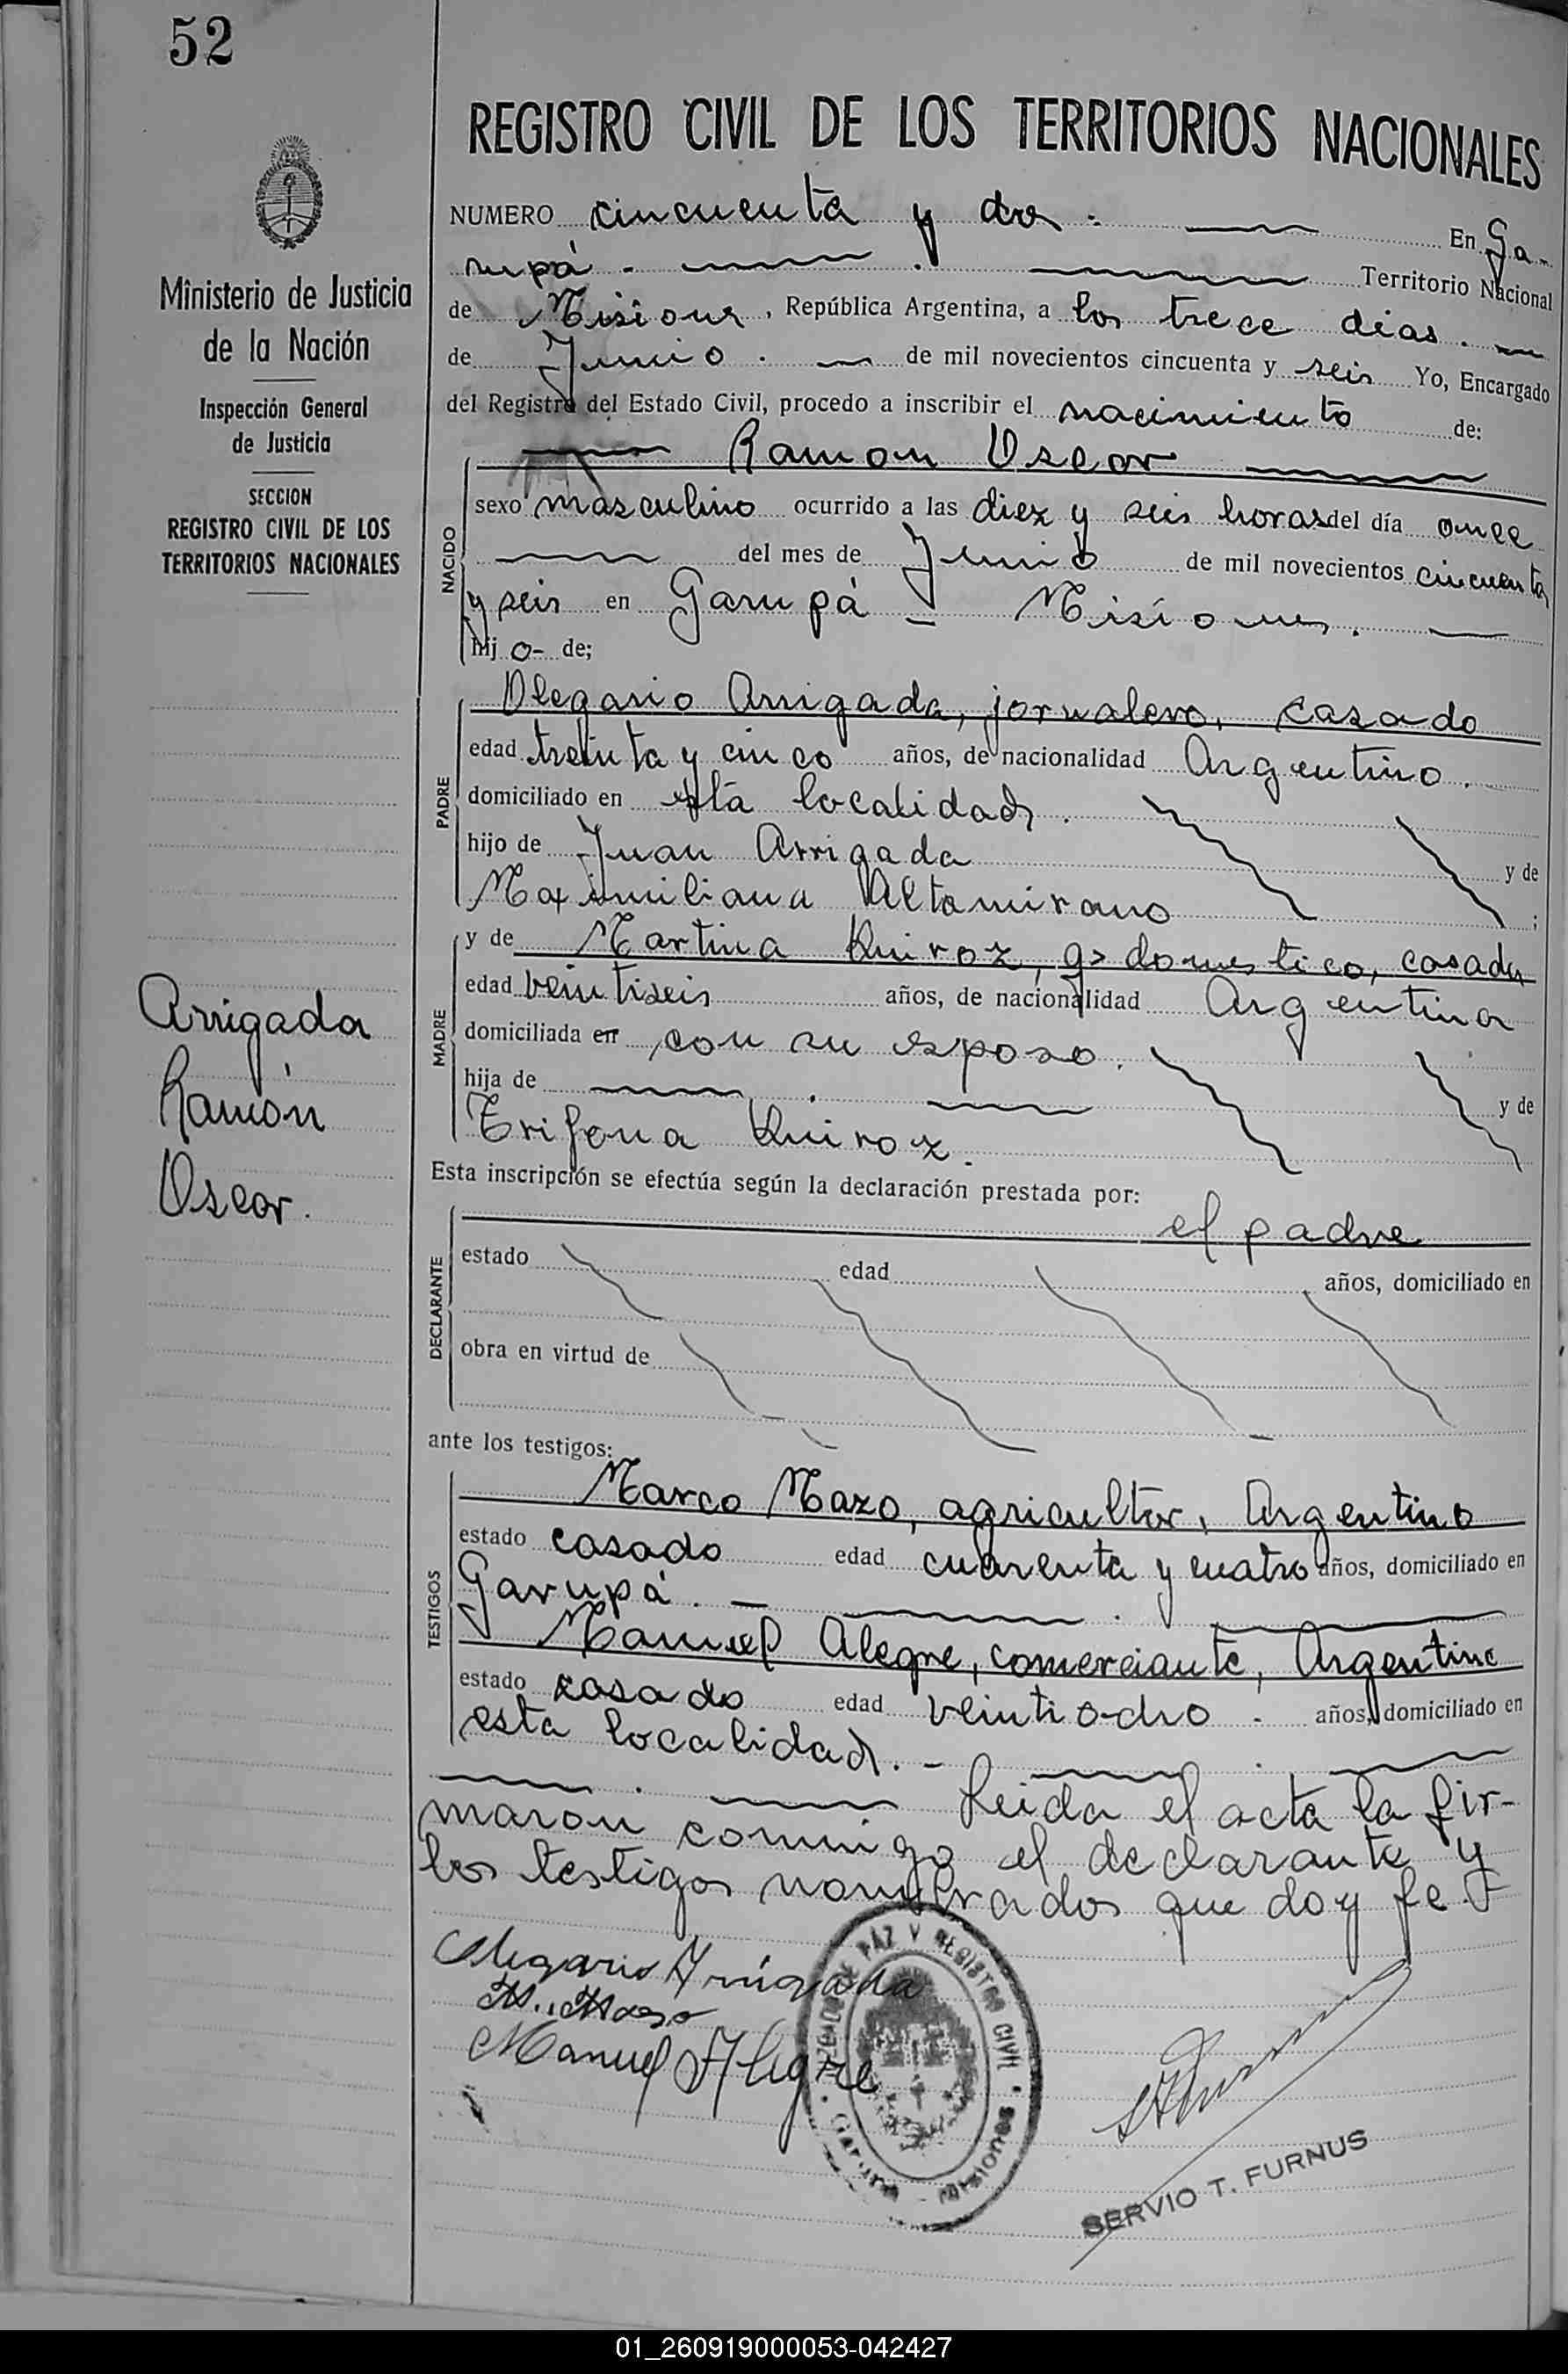 52
REGISTRO CIVIL DE LOS TERRITORIOS NACIONALES
Ministerio de Justicia
de la Nación
Inspección General
de Justicia
SECCION
REGISTRO CIVIL DE LOS
TERRITORIOS NACIONALES
Arrigada
Ramón
Oscar.
NUMERO cincuenta y dos. En Ga-
rupá. Territorio Nacional
de Misiones, República Argentina, a los trece dias.
de Junio. de mil novecientos cincuenta y seis Yo, Encargado
del Registro del Estado Civil, procedo a inscribir el nacimiento de:
Ramon Oscar
NACIDO
sexo masculino ocurrido a las diez y seis horas del día once
del mes de Junio de mil novecientos cincuenta
y seis en Garupá - Misiones.
hij o- de;
Olegario Arrigada, jornalero, casado
PADRE
edad treinta y cinco años, de nacionalidad Argentino.
domiciliado en esta localidad.
hijo de Juan Arrigada y de
Maximiliana Altamirano ;
y de Martina Kuiroz, q> domestico, casada
MADRE
edad veintiseis años, de nacionalidad Argentina
domiciliada en con su esposo.
hija de y de
Trifona Kuiroz.
Esta inscripción se efectúa según la declaración prestada por:
el padre
DECLARANTE
estado edad años, domiciliado en
obra en virtud de
ante los testigos:
Marco Mazo, agricultor, Argentino
TESTIGOS
estado casado edad cuarenta y cuatro años, domiciliado en
Garupá. -
Manuel Alegre, comerciante, Argentino
estado casado edad veintiocho. años, domiciliado en
esta localidad. -
Leida el acta la fir-
maron conmigo el declarante y
los testigos nombrados que doy fe.
Olegario Arrigada
M. Mazo
Manuel Alegre
DE PAZ Y REGISTRO CIVIL
Garupá - Misiones
SERVIO T. FURNUS
01_260919000053-042427